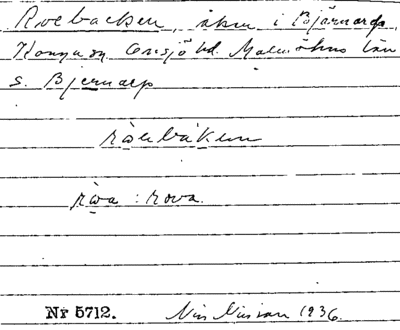 Roebacken, åker i Bjärnarp,
Konga sn Onsjö hd. Malmöhus län
s. Bjernarp
ròebáken
ròa : rova.
Nr 5712. Nils Nilsson 1936.